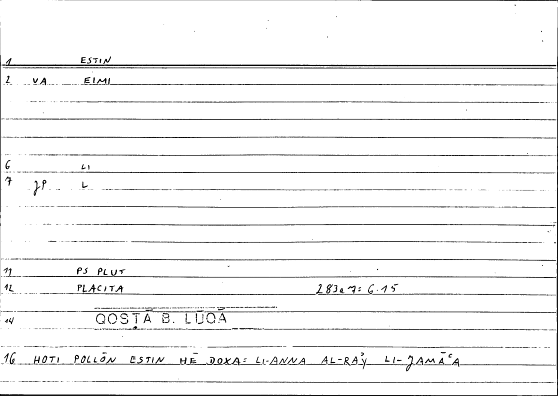 1 ESTIN
2 VA EIMI
6 LI
7 JP L
11 PS PLUT
12 PLACITA 283a7: 6.15
14 QOSṬĀ B. LŪQĀ
16 HOTI POLLŌN ESTIN HĒ DOXA: LI-ANNA AL-RAʾY LI-JAMĀʿA